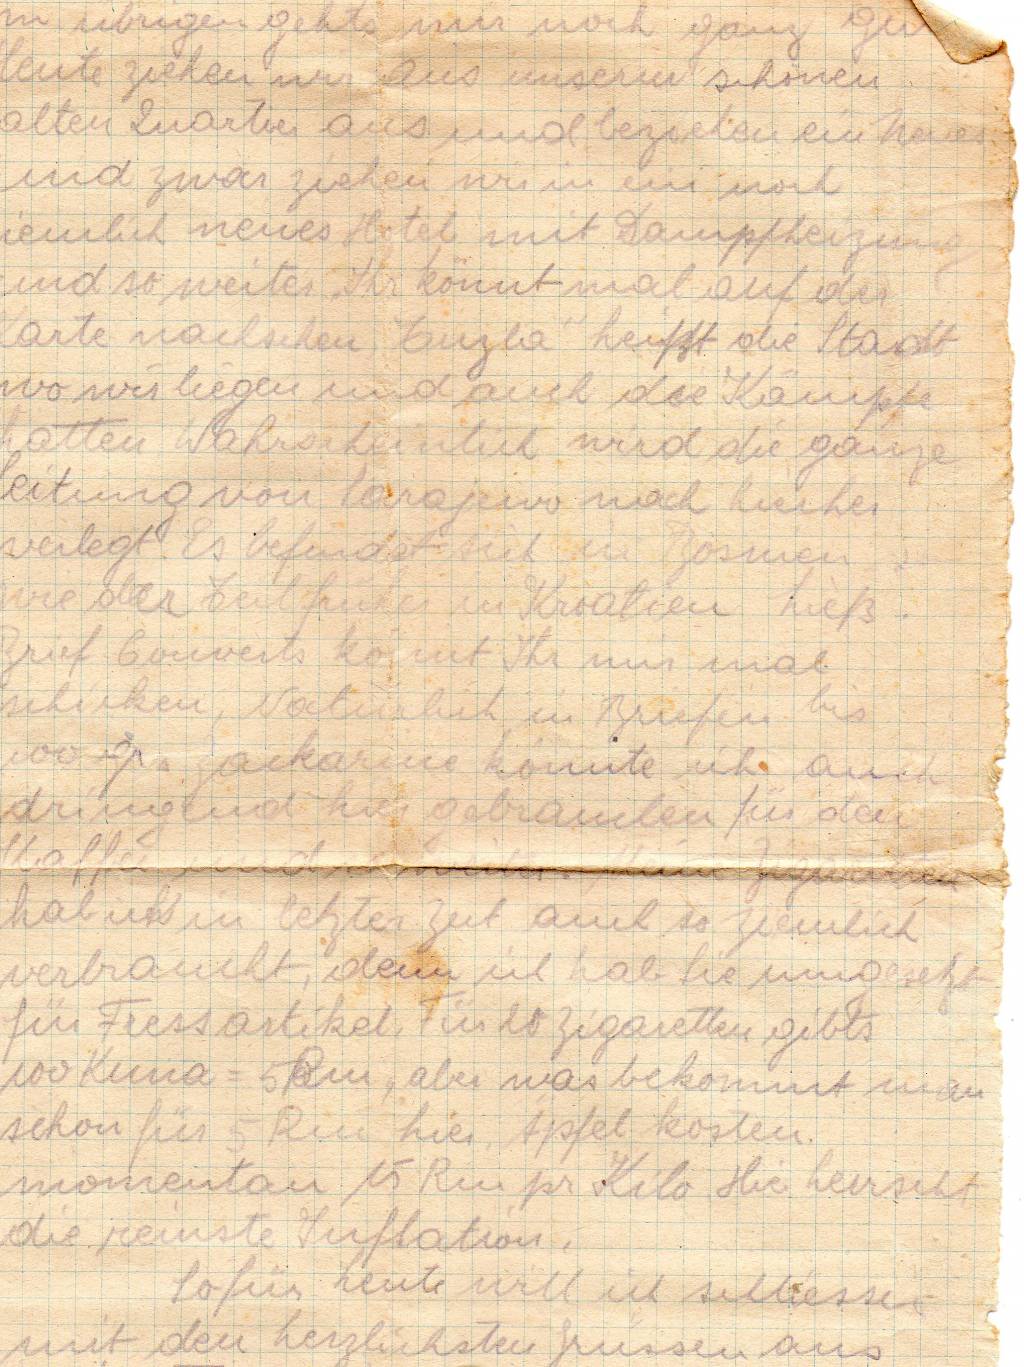 m übrigen gehts mir noch ganz gut
Heute ziehen wir aus unserm schönen
alten Quartier aus und beziehen ein neues
und zwar ziehen wir in ein noch
ziemlich neues Hotel mit Dampfheizung
und so weiter. Ihr könnt mal auf der
Karte nachsehen "Tuzla" heißt die Stadt
wo wir liegen und auch die Kämpfe
hatten Wahrscheinlich wird die ganze
Leitung von Sarajewo nach hierher
verlegt. Es befindet sich in Bosnien
wie der Teil früher in Kroatien hieß.
Brief Couverts könnt Ihr mir mal
schicken, Natürlich in Briefen bis
100 gr. Zackarine könnte ich auch
dringend hier gebrauchen für den
Kaffee und so weiter. Meine Zigaretten
hab ich in letzter Zeit auch so ziemlich
verbraucht, denn ich hab sie umgesetzt
für Fressartikel. Für 20 Zigaretten gibts
100 Kuna = 5 Rm, aber was bekommt man
schon für 5 Rm hier, Äpfel kosten.
momentan 15 Rm pr Kilo Hier herrscht
die reinste Inflation.
So für heute will ich schliessen
mit den herzlichsten Grüssen aus